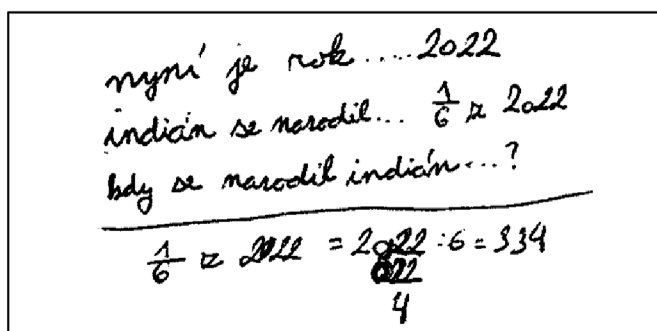 nyní je rok.....2022
indián se narodil... 1/6 z 2022
kdy se narodil indián...?
1/6 z 2022 = 2022 : 6 = 334
022
4